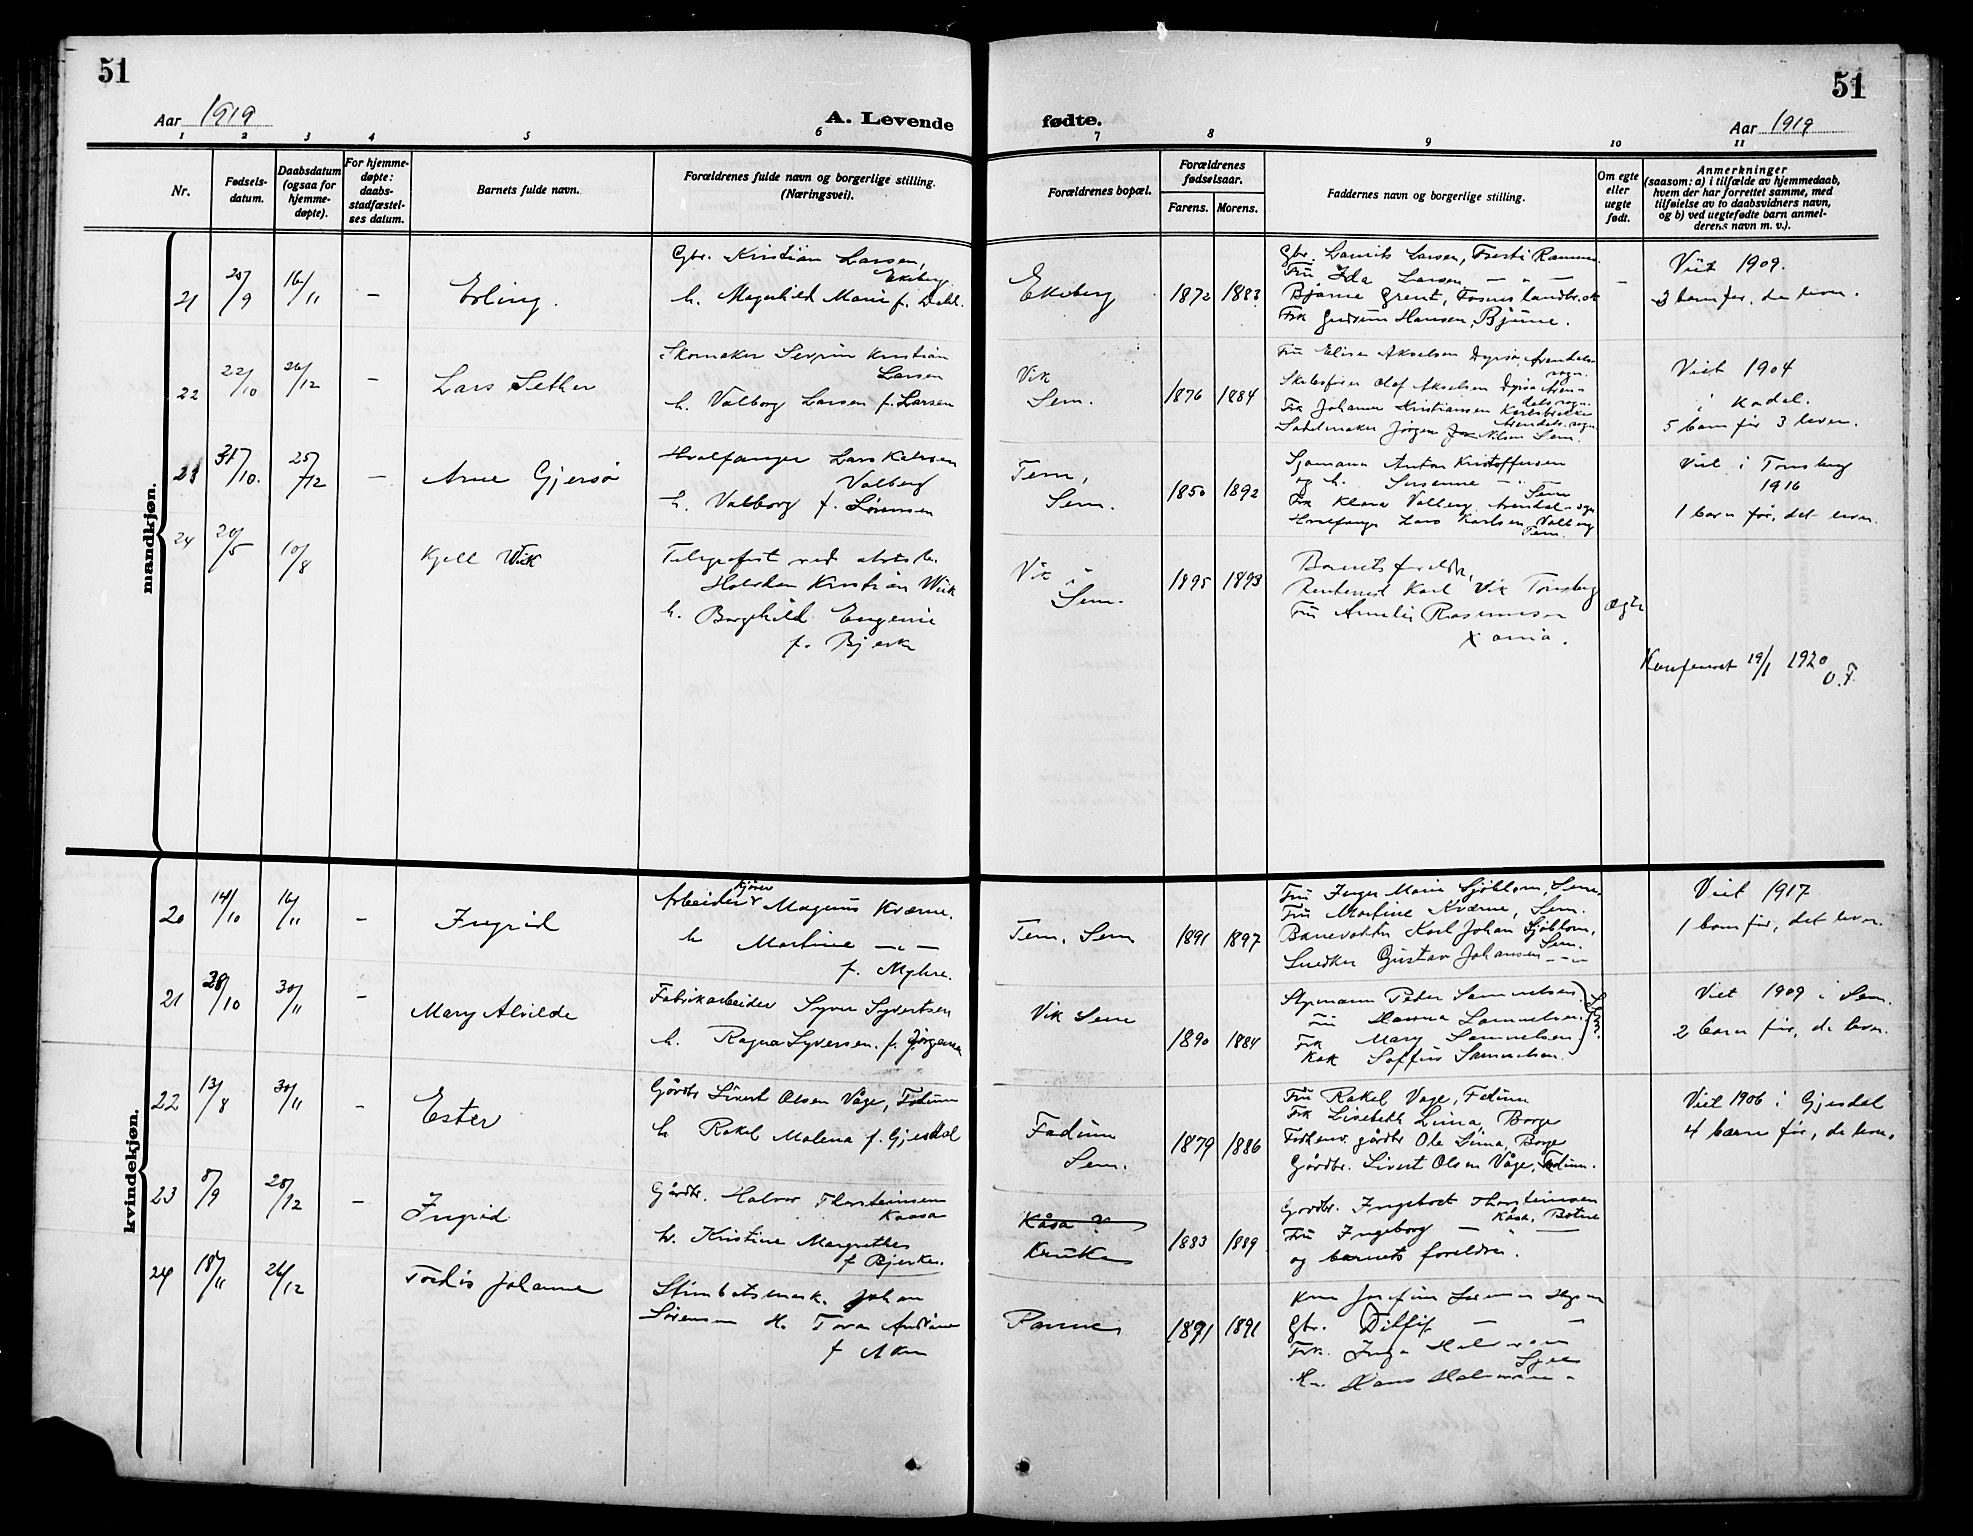 51
51
Aar 1919
A. Levende
fødte.
Aar 1919
1 2 3 4 5 6 7 8 9 10 11
Nr.
Fødsels-
datum.
Daabsdatum
(ogsaa for
hjemme-
døpte).
For hjemme-
døpte:
daabs-
stadfæstel-
ses datum.
Barnets fulde navn.
Forældrenes fulde navn og borgerlige stilling.
(Næringsvei).
Forældrenes bopæl.
Forældrenes
fødselsaar.
Farens. Morens.
Faddernes navn og borgerlige stilling.
Om egte
eller
uegte
født.
Anmerkninger
(saasom: a) i tilfælde av hjemmedaab,
hvem der har forrettet samme, med
tilføielse av to daabsvidners navn,
og b) ved uegtefødte barn anmel-
derens navn m. v.).
mandkjøn.
21
20/9
16/11
–
Erling.
Gbr. Kristian Larsen,
Ekeberg
h. Magnhild Marie f. Dahl.
Ekeberg
1872 1883
Gbr. Larsen,
Fru Ida Larsen — „ —
Bjarne Grent, landbr.sk
Frk Gudrun Hansen, Bjune.
–
Viet 1909.
3 barn før, de lever.
22
22/10
26/12
–
Lars Sether
Skomaker Severin Kristian
Larsen
h. Valborg Larsen f. Larsen
Vik
Sem.
1876 1884
Fru Elise Akselsen Dyrsø, Arendals
sogn.
Olaf Akselsen Dyrsø Aren-
dals sogn.
Frk Johanne Kristiansen
Arendals sogn
Sadelmaker Jørgen Nilsen Sem.
Viet 1904
i
5 barn før 3 lever.
23
31/10.
25/12
–
Arne Gjersø
Hvalfanger Lars Karlsen
Valberg
h. Valborg f. Sørensen
Tem,
Sem.
1850 1892
Sjømann Anton Kristoffersen
og h. Susanne — „ —
Sem
Frk Klara Valberg, Arendal sogn
Hvalfanger Lars Karlsen Valberg
Tem.
Viet i Tønsberg
1916
1 barn før, det lever.
24
20/5
10/8
Kjell Wiik
Telegrafist ved
Kristian Wiik
h. Borghild Eugenie
f. Bjerke
Vik i
Sem.
1895 1893
Barnets foreldre,
Rentenist Karl Vik Tønsberg
Fru Amalie Rasmussen
Xania.
ægte
Konferert 19/1 1920
O. F.
kvindekjøn.
20
14/10
16/11
–
Ingrid
kjører
Arbeider Magnus Kværne.
h Martine — „ —
f. Myhre.
Tem, Sem
1891 1897
Fru Inger Marie Sjøblom, Sem,
Fru Martine Kværne, Sem.
Banevokter Karl Johan Sjøblom,
Sem.
Snedker Gustav Johansen — „ —
Viet 1917
1 barn før, det lever.
21
28/10
30/11
–
Mary Alvilde
Fabrikarbeider Syver Syvertsen
h. Ragna Syversen. f. Jørgensen
Vik Sem
1890 1884
Styrmann Peder Samuelsen
Fru Hanna Samuelsen
Frk Mary Samuelsen
Kok Soffus Samuelsen
Sem.
Viet 1909 i Sem.
2 barn før, de lever.
22
13/8
30/11
–
Ester
Gårdbr Sivert Olsen Våge, Fadum
h Rakel Malena f. Gjesdal
Fadum
Sem.
1879 1886
Fru Rakel Våge, Fadum
Frk Lisebeth Lima, Borge
Forhenv. gårdbr Ole Lima, Borge
Gårdbr. Sivert Olsen Våge, Fadum.
Viet 1906 i Gjesdal
4 barn før, de lever.
23
8/9
28/12
–
Ingrid
Gårdbr. Halvor Thorsteinsen
Kaasa
h. Kristine Margrethe
f Bjerke.
Kåsa ?
1883 1889
Gårdbr. Ingebret Thorsteinsen
Kåsa, Botne
Fru Ingeborg — „ —
og barnets foreldre.
24
18/11
26/12
Tordis Johanne
Stuebatsmask. Johan
Sørensen H. Tora Andrine
f Aker
Ramnes
1891 1891
Josefine
Gbr.
Frk. Inga
Hans